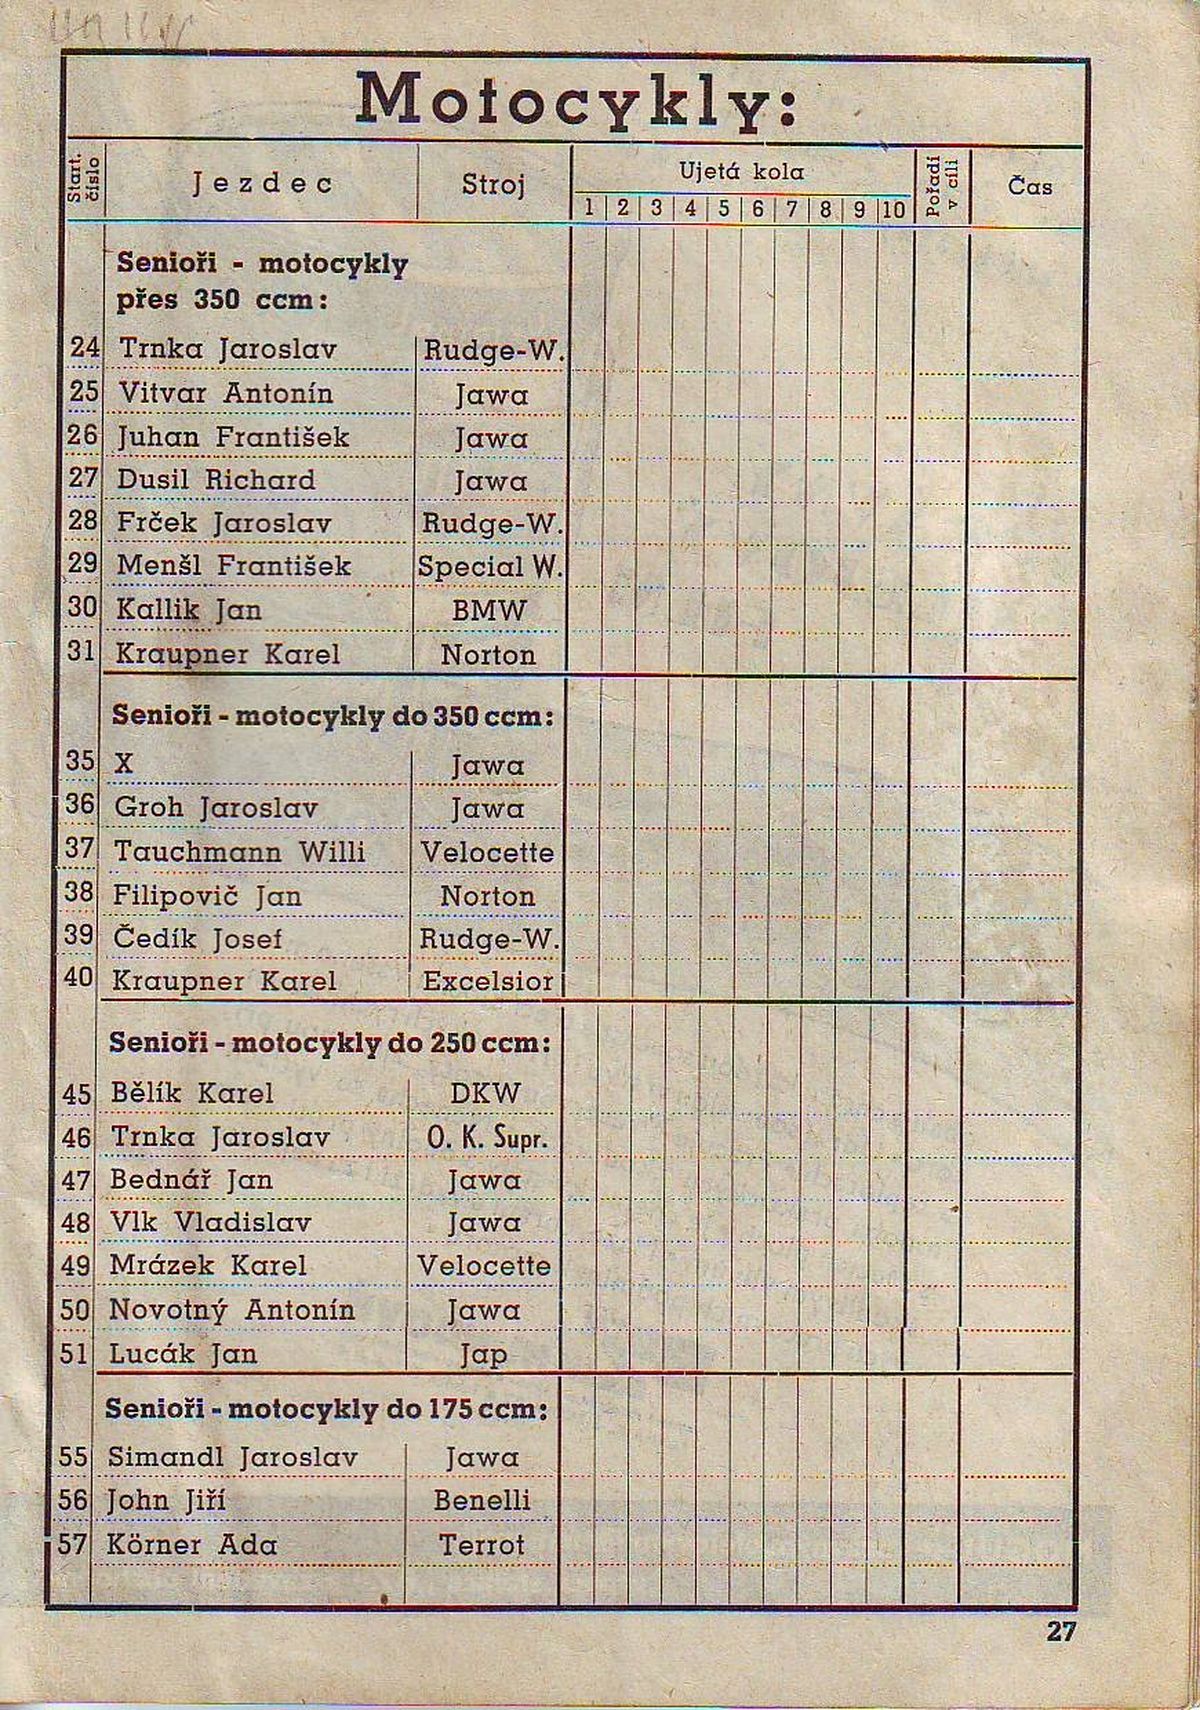 Motocykly:
Start. číslo Jezdec Stroj Ujetá kola Pořadí v cíli Čas
1 2 3 4 5 6 7 8 9 10
Senioři - motocykly
přes 350 ccm:
24 Trnka Jaroslav Rudge-W.
25 Vitvar Antonín Jawa
26 Juhan František Jawa
27 Dusil Richard Jawa
28 Frček Jaroslav Rudge-W.
29 Menšl František Special W.
30 Kallik Jan BMW
31 Kraupner Karel Norton
Senioři - motocykly do 350 ccm:
35 X Jawa
36 Groh Jaroslav Jawa
37 Tauchmann Willi Velocette
38 Filipovič Jan Norton
39 Čedík Josef Rudge-W.
40 Kraupner Karel Excelsior
Senioři - motocykly do 250 ccm:
45 Bělík Karel DKW
46 Trnka Jaroslav O. K. Supr.
47 Bednář Jan Jawa
48 Vlk Vladislav Jawa
49 Mrázek Karel Velocette
50 Novotný Antonín Jawa
51 Lucák Jan Jap
Senioři - motocykly do 175 ccm:
55 Simandl Jaroslav Jawa
56 John Jiří Benelli
57 Körner Ada Terrot
27